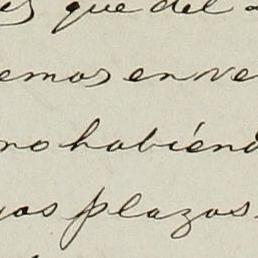 es que del
emos en ve
no habiend
yos plazos